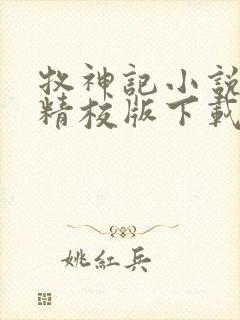 牧神記小說
精校版下載
姚紅兵